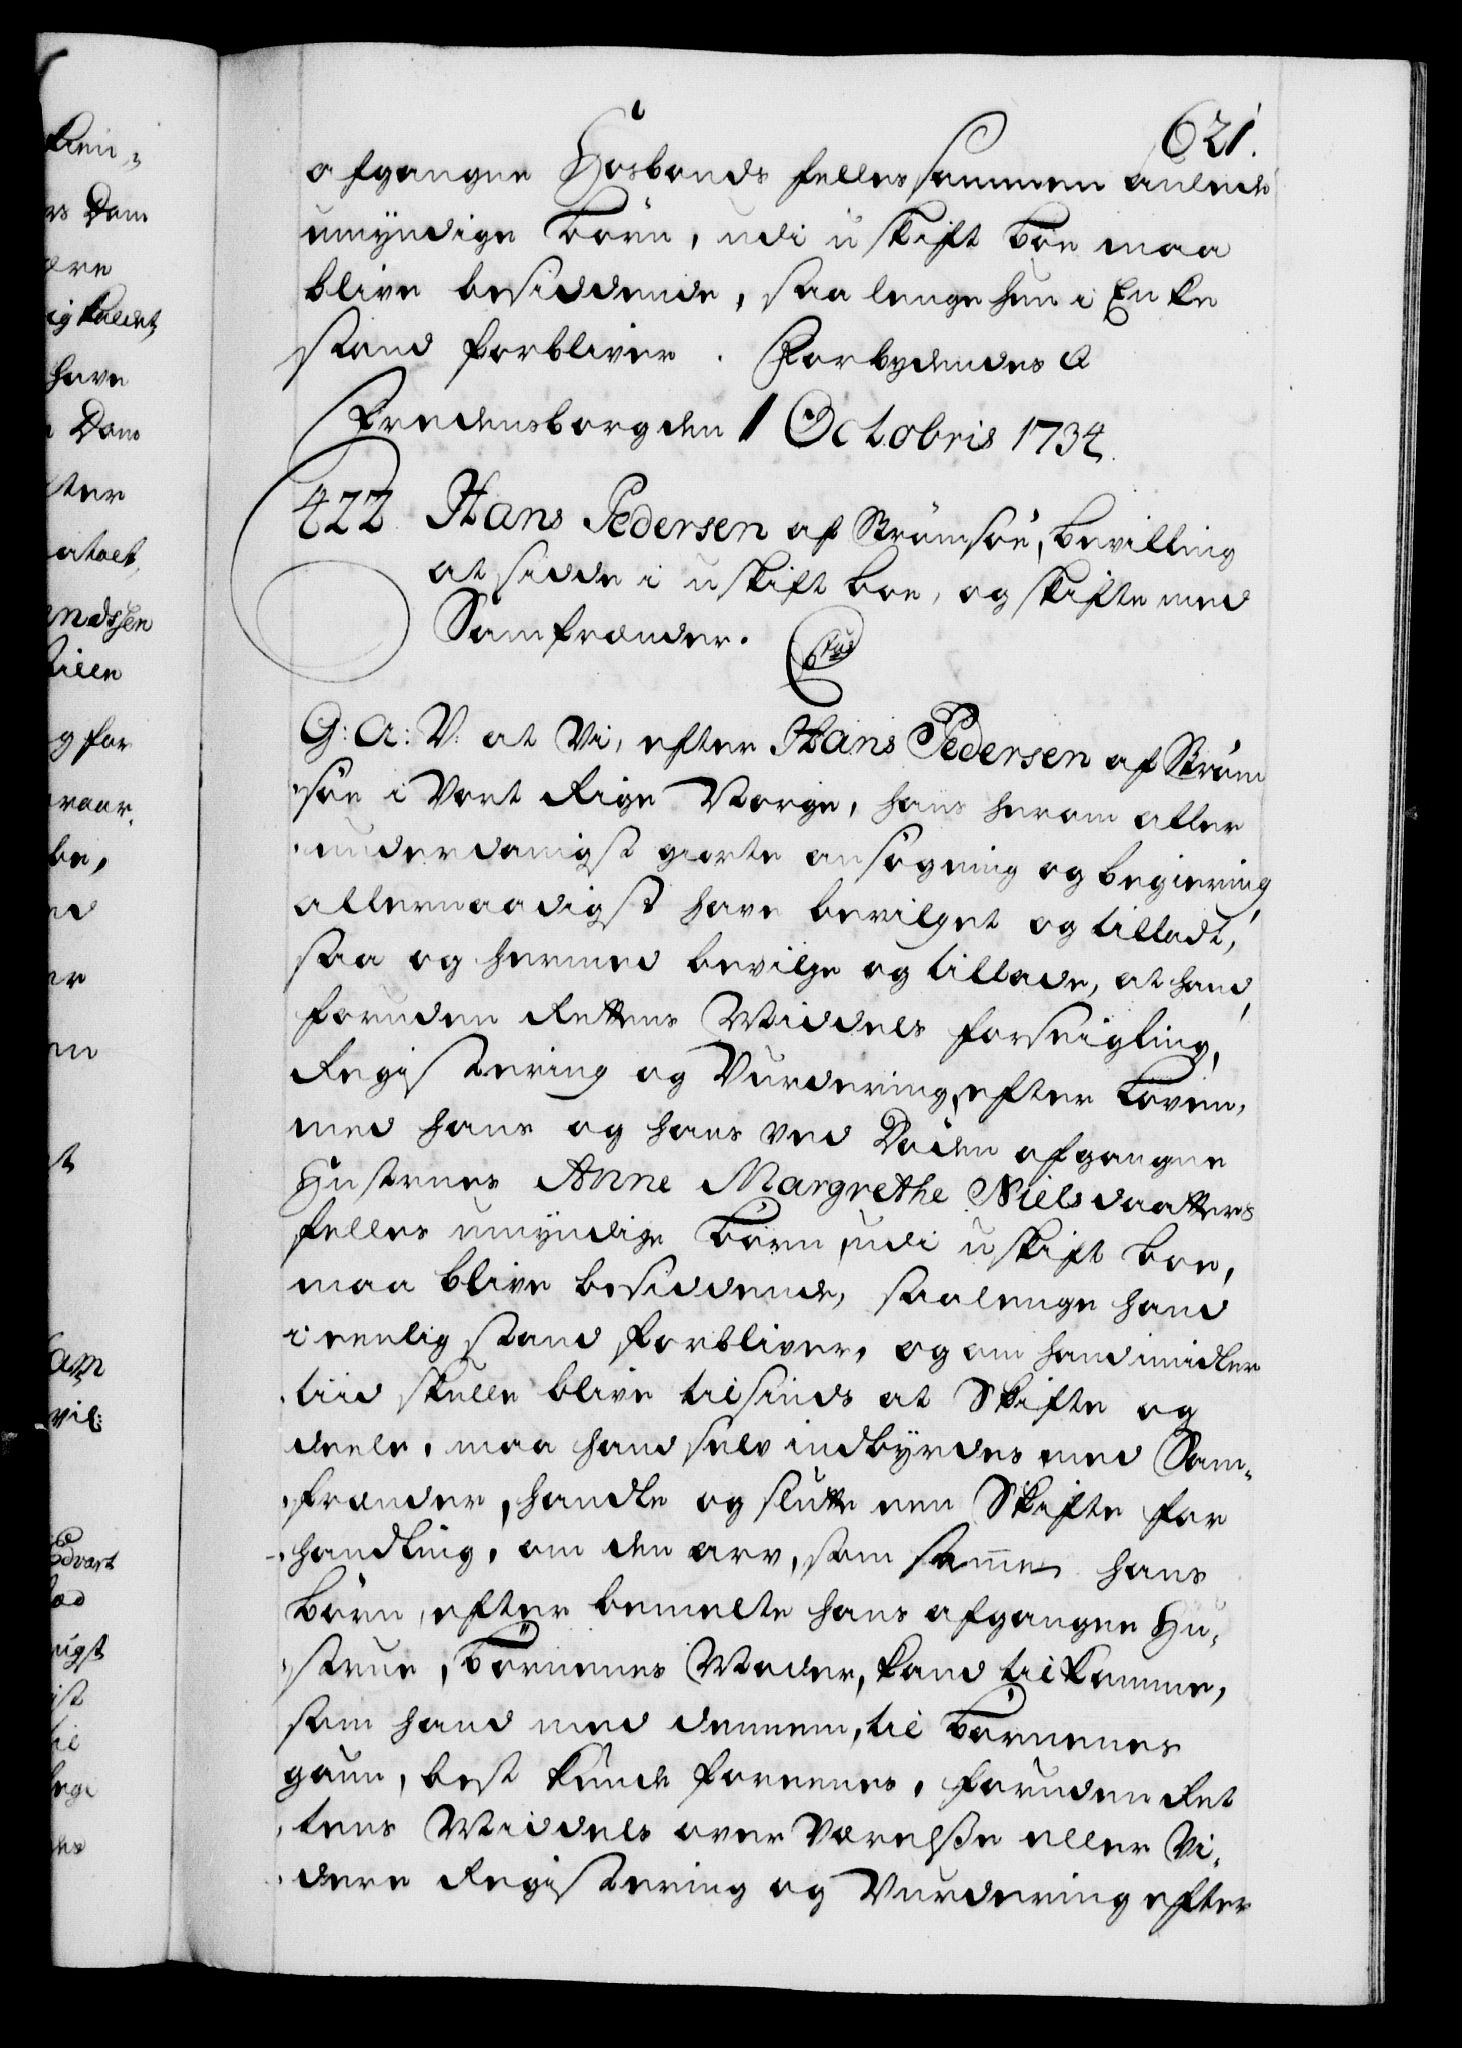 621.
afgangne Hosbonds felles sammen aulede
umyndige Børn, udi uskift Boe maa
blive besiddende, saa lenge hun i Enke
stand forbliver. Forbydendes &
Fredensborg den 1 Octobris 1734.
422 Hans Pedersen af Strømsøe, bevilling
at sidde i uskift boe, og skifte med
Samfrænder.
G: A: V: at Vi, efter Hans Pedersen af Strøm
søe i Vort Rige Norge, hans herom aller
underdanigst giorte ansøgning og begiering,
allernaadigst have bevilget og tilladt,
saa og hermed bevilge og tillade, at hand,
foruden Rettens Middels forseigling,
Registering og Vurdering, efter Loven,
med hans og hans ved Døden afgangne
Hustrues Anne Margrethe Nielsdaatters
felles umyndige Børn, udi uskift boe,
maa blive besiddende, saalenge hand
i eenlig stand forbliver, og om hand imidler
tiid skulle blive tilsinds at Skifte og
deele, maa hand selv indbyrdes med Sam-
frænder, handle og slutte een Skifte for
handling, om den arv, som samme hans
Børn, efter bemelte hans afgangne Hu-
strue, Børnenes Moder, kand tilkomme,
som hand med dennem, til Børnenes
gavn, best kunde foreenes, foruden Ret
tens Middels overværelse eller Vi-
dere Registering og Vurdering efter